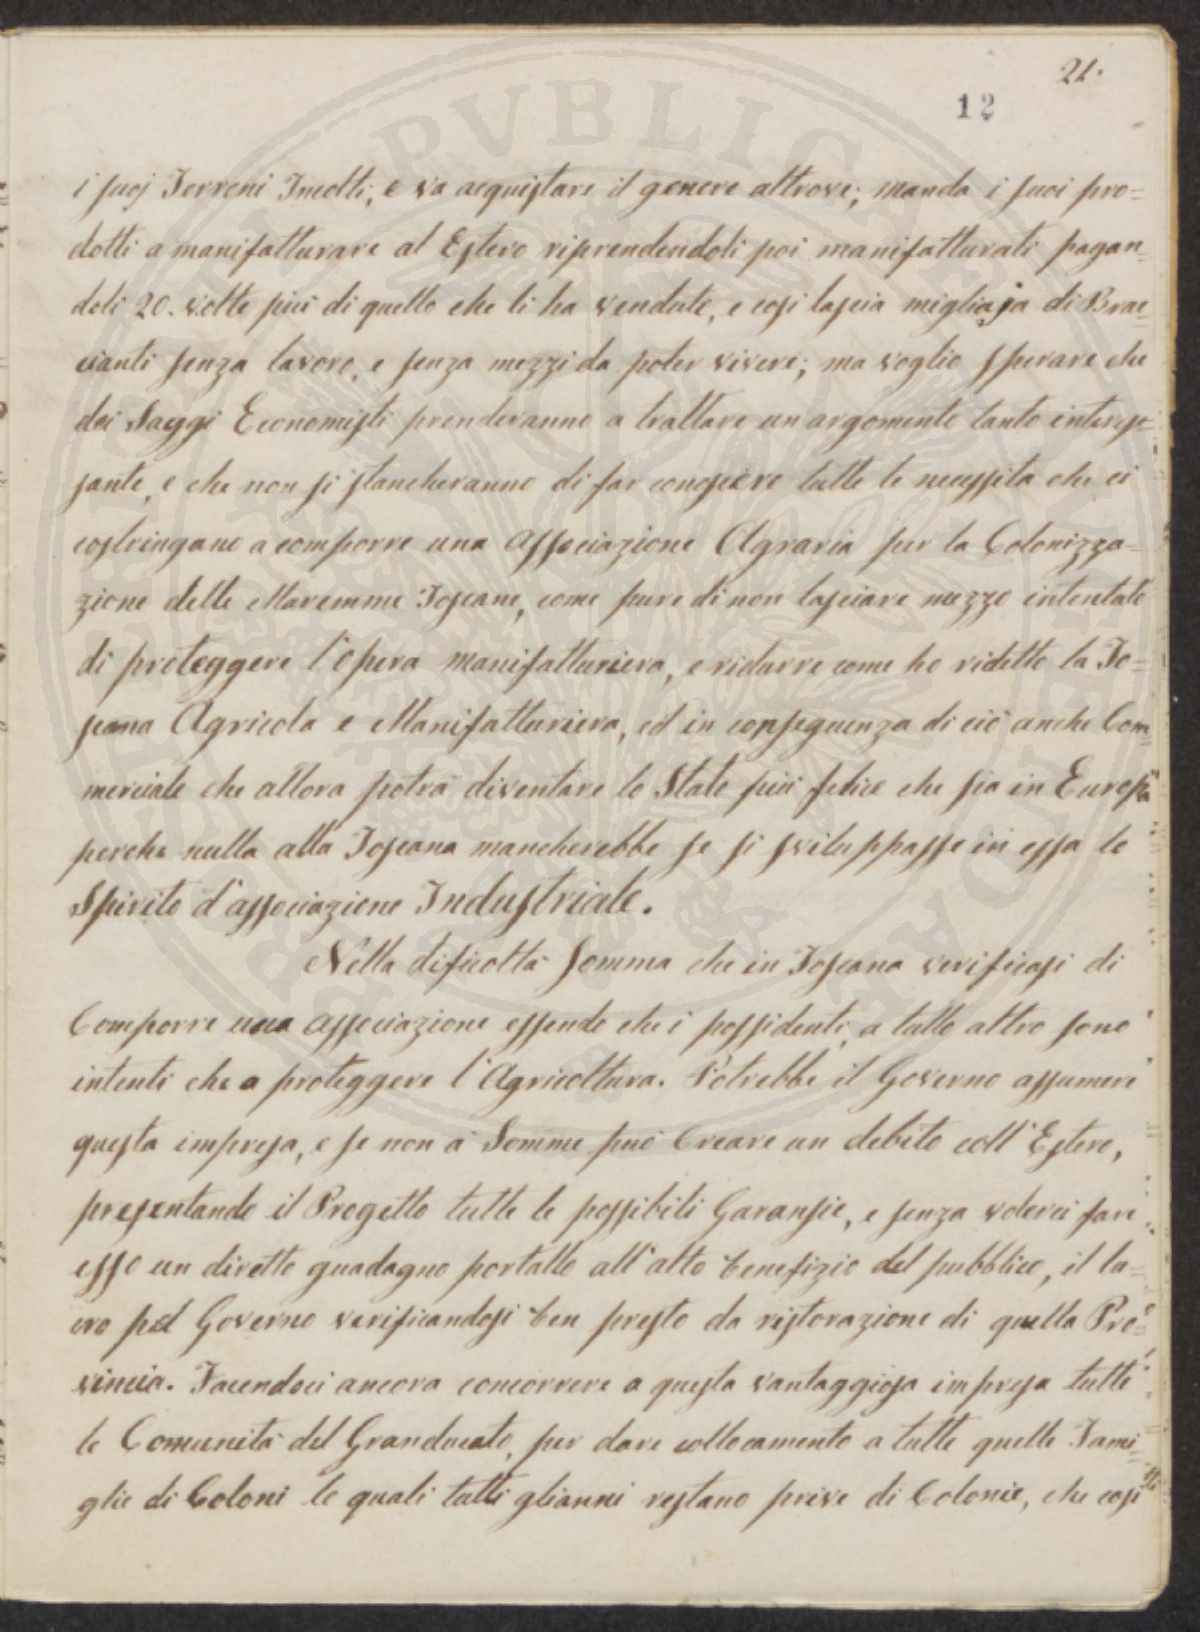 21.
12
i suoj Terreni Incolti; e va acquistare il genere altrove; manda i suoi pro=
dotti a manifatturare al Estero riprendendoli poi manifatturati pagan=
doli 20. volte più di quello che li ha vendute, e cosi lascia migliaja di Brac=
cianti senza lavoro, e senza mezzi da poter vivere; ma voglio sperare che
dei Saggi Economisti prenderanno a trattare un argomento tanto interes=
sante, e che non si stancheranno di far conoscere tutte le necessita che ci
costringano a comporre una associazione Agraria per la Colonizza=
zione delle Maremme Toscane, come pure di non lasciare mezzo intentato
di proteggere l'opera manifatturiera, e ridurre come ho ridetto la To=
scana Agricola e Manifatturiera, ed in conseguenza di ciò anche Com=
merciale che allora potrà diventare lo Stato più felice che sia in Europa
perche nulla alla Toscana mancherebbe se si sviluppasse in essa lo
Spirito d'associazione Industriale.
Nella dificoltà somma che in Toscana verificasi di
Comporre una associazione essendo che i possidenti, a tutto altro sono
intenti che a proteggere l'Agricoltura. Potrebbe il Governo assumere
questa impresa, e se non à Somme può Creare un debito coll'Estero,
presentando il Progetto tutte le possibili Garansie, e senza volerci fare
esso un diretto guadagno portallo all'alto benefizio del pubblico, il lu=
cro pel Governo verificandosi ben presto da ristorazione di quella Pro=
vincia. Facendoci ancora concorrere a questa vantaggiosa impresa tutte
le Comunità del Granducato, per dare collocamento a tutte quelle Fami=
glie di Coloni le quali tutti glianni restano prive di Colonie, che cosi